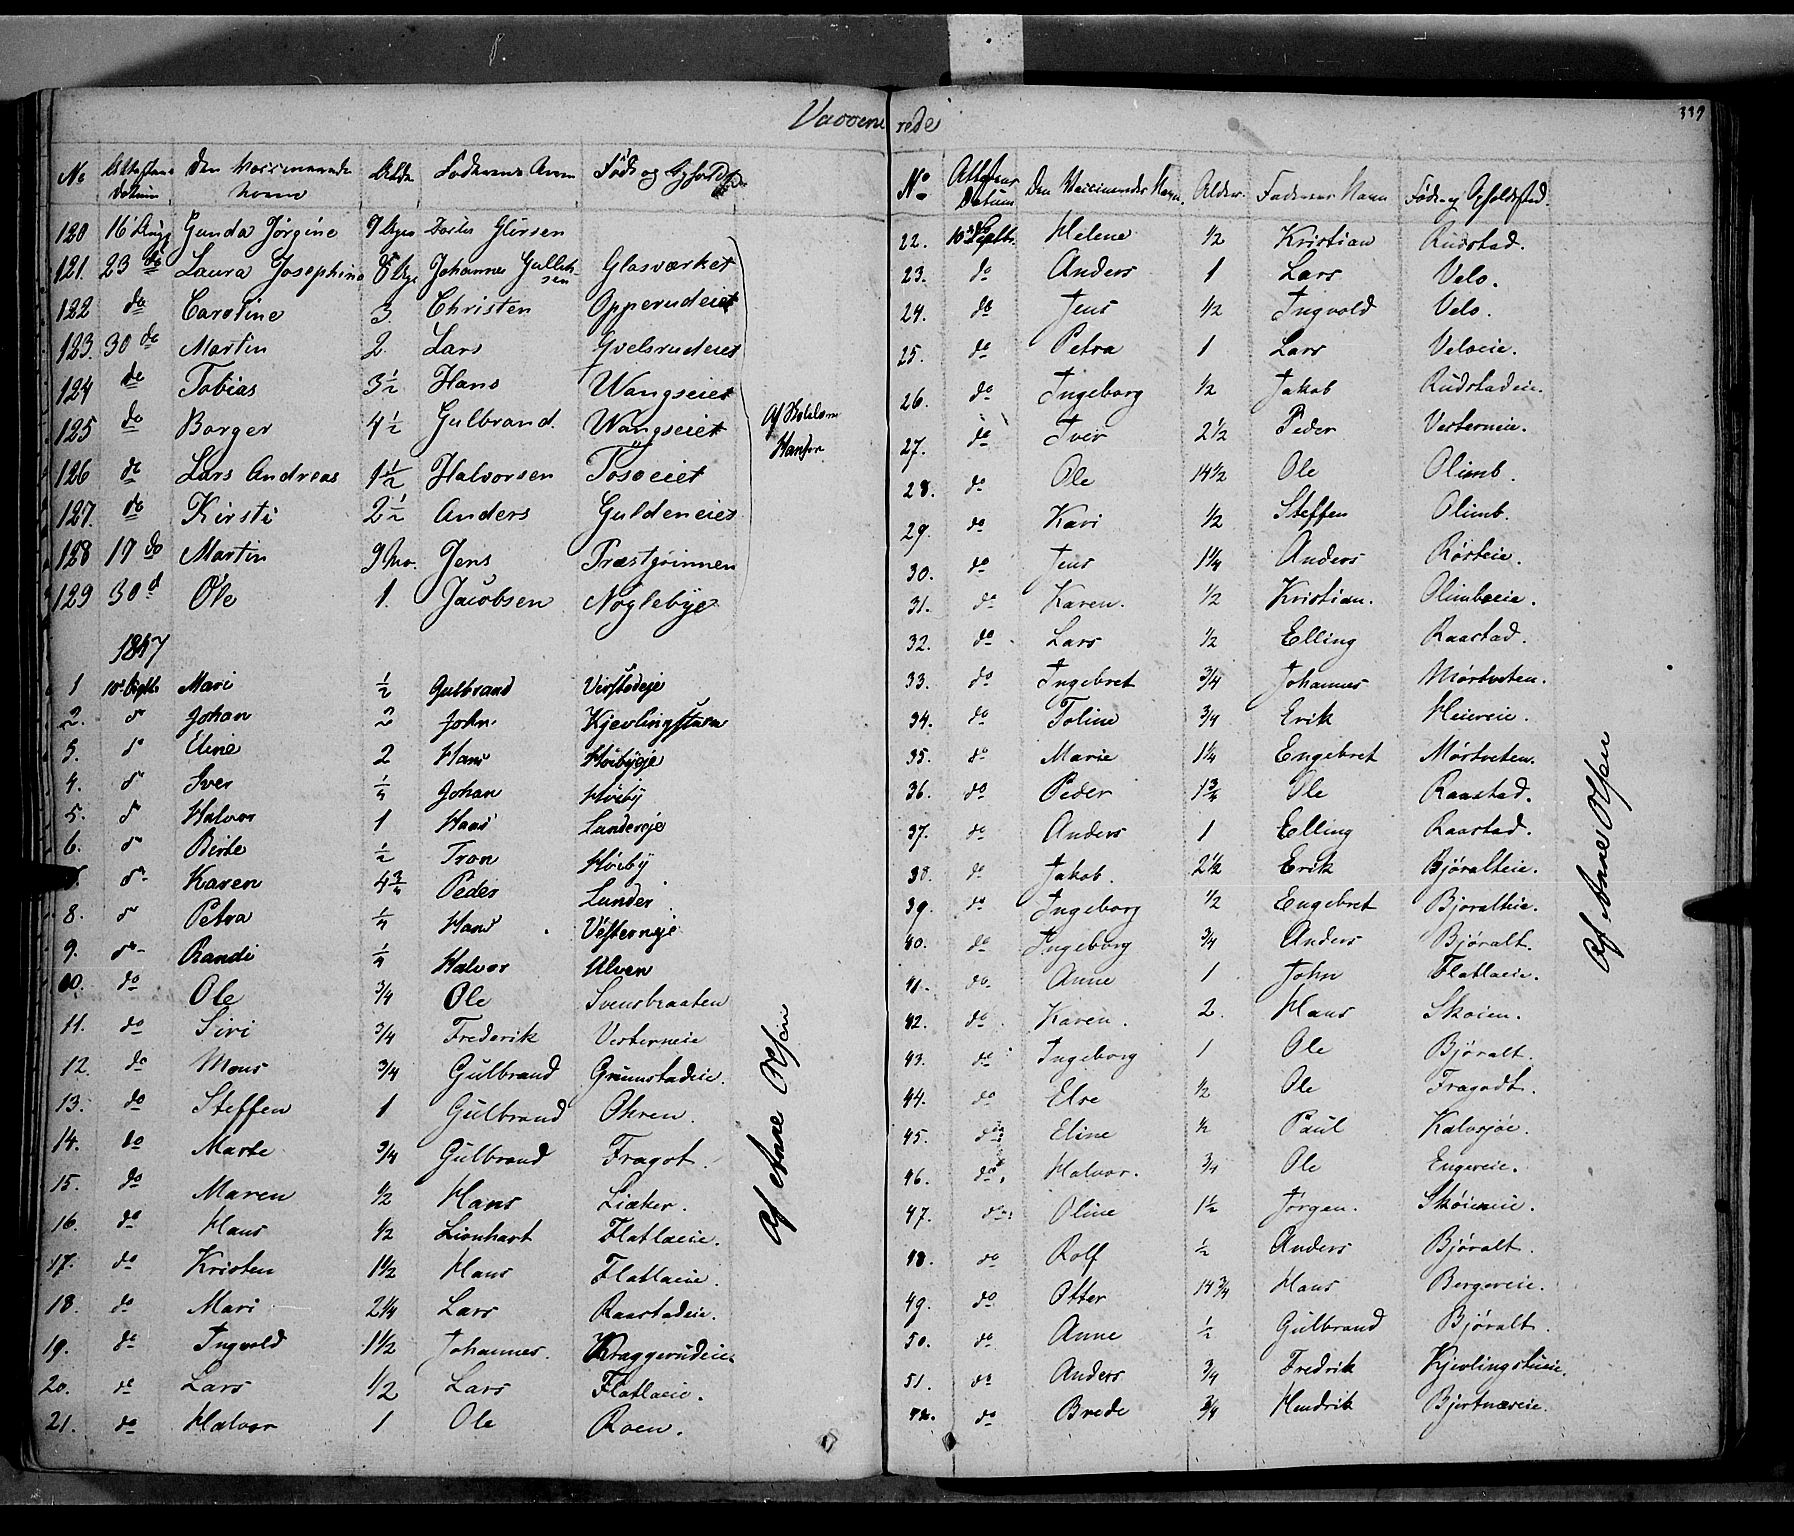 Vaccinerede
339
No Attestens Datum Den Vaccineredes Navn Alder Faderens Navn Føde og Opholdsted
120 16 Aug Gunda Jørgine 9 Glörsen
121. 23 do Laura Josephine Johannes Gulliksen Glasværket
122 do Caroline 3. Christen Opperudeiet
123. 30 do Martin 2. Lars Gvelsrudeiet
124 do Tobias 3½ Hans Wangseiet
125 do Borger 4½ Gulbrand. Wangseiet
126 do Lars Andreas 1½ Halvorsen Tosoeiet
127. do Kirsti 2½ Anders Guldeneiet
128 17 do Martin 9 Mo. Jens Præstgrinnen
129 30 d Ole 1. Jacobsen Nøglebye
Hansen
1847
1 10 Septb Mari ½ Gulbrand Virstadeje
2. do Johan 2 John. Kjevlingstuen
3. do Eline 2 Hans Høibyeje
4. do Iver ¼ Johan Høiby
5. do Halvor 1 Haas Lundereje
6. do Birte ½ Tron Høiby
do Karen 4¾ Peder Lunder
8. do Petra ¼ Hans Vesterneje
9. do Randi ¼ Halvor Ulven
10. do Ole ¾ Ole Svensbraaten
11. do Siri ¾ Frederik Vesterneie
12. do Mons ¾ Gulbrand Grumstadeie.
13. do Steffen 1 Gulbrand Ohren.
14. do Marte ¾ Gulbrand Fragot.
15. do Maren ½ Hans Liaker.
16. do Hans ½ Lionhart Flatlaeie.
17. do Kristen 1½ Hans Flatlaeie.
18. do Mari 2¼ Lars Raastadeie.
19. do Ingvold 1½ Johannes. Kraggerudeie.
20. do Lars ½ Lars Flatlaeie.
21. do Halvor 1 Ole Roen.
Af Anne Olsen
No Attestens Datum Den Vaccineredes Navn. Alder. Faderens Navn Føde og Opholdsted.
22. 10 Septb. Helene ½ Kristian Rudstad.
23. do Anders 1 Lars Velo.
24. do Jens ½ Ingvold Velo.
25. do Petra 1 Lars Veloeie.
26. do Ingeborg ½ Jakob Rudstadeie.
27. do Iver 2½ Peder Vesterneie.
28. do Ole 14½ Ole Olimb.
29. do Kari ½ Steffen Olimb.
30. do Jens 1¼ Anders Røsteie.
31. do Karen. ½ Kristian. Olimbseie.
32. do Lars ½ Elling Raastad.
33. do Ingebret ¾ Johannes Mørtveten.
34. do Toline ¾ Erik Heiereie.
35. do Marie 1¼ Engebret Mørtveten.
36. do Peder 1¾ Ole Raastad.
37. do Anders 1 Elling Raastad.
38. do Jakob. 2½ Erik Bjøralteie.
39. do Ingeborg ½ Engebret Bjøralteie.
40. do Ingeborg ¾ Anders Bjøralt.
41. do Anne 1 John Flatlaeie.
42. do Karen. 2. Hans Skøien.
43. do Ingeborg 1 Ole Bjøralt.
44. do Else ½ Ole Fragodt.
45. do Eline ½ Paul Kalvsjøe.
46. do Halvor. ¾ Ole Engereie.
47. do Oline 1½ Jørgen. Skøieneie.
48. do Rolf ½ Anders Bjøralt.
49. do Otter 14¾ Hans Bergereie.
50. do Anne ½ Gulbrand Bjøralt.
51. do Anders ¾ Fredrik Kjevlingstueie.
do Brede ¾ Hendrik Bjertnæseie.
Af Anne Olsen